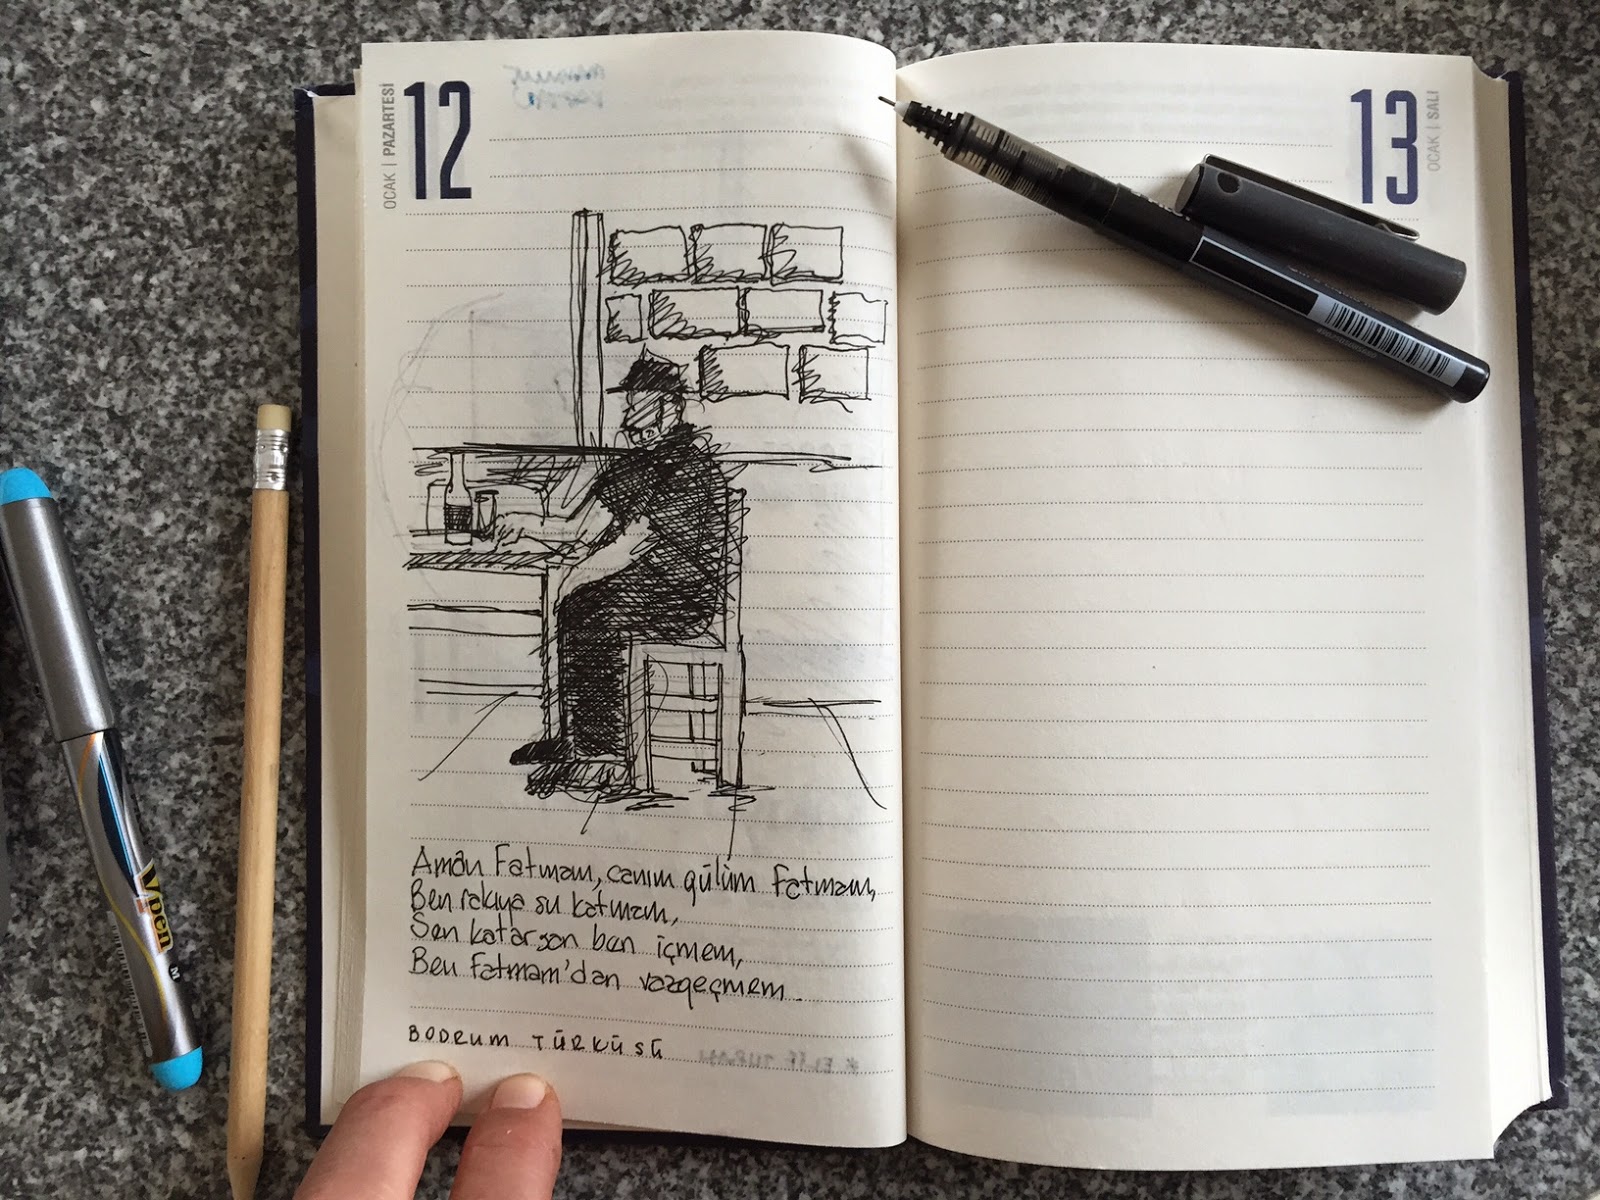 OCAK | PAZARTESİ
12
Aman Fatmam, canım gülüm Fatmam,
Ben rakıya su katmam,
Sen katarsan ben içmem,
Ben Fatmam'dan vazgeçmem.
BODRUM TÜRKÜSÜ
* ELİF TURAN
13
OCAK | SALI
Vpen
M